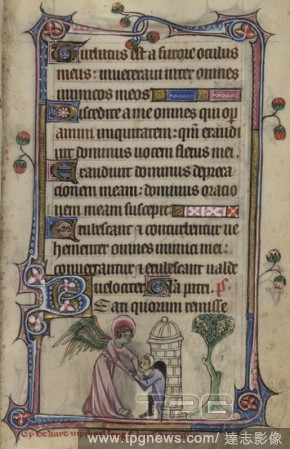 Turbatus est a furore oculus
meus: inveteravi inter omnes
inimicos meos
Discedite a me omnes qui op
amini iniquitatem: qm̄ exaudi
vit dominus vocem fletus mei.
Exaudivit dominus depreca
cionem meam: dominus oracio
nem meam suscepit
Erubescant & conturbentur ve
hementer omnes inimici mei:
convertantur & erubescant valde
velociter Gl̄a patri. ps.
Beati quorum remisse
TPG
www.tpgnews.com / 達志影像